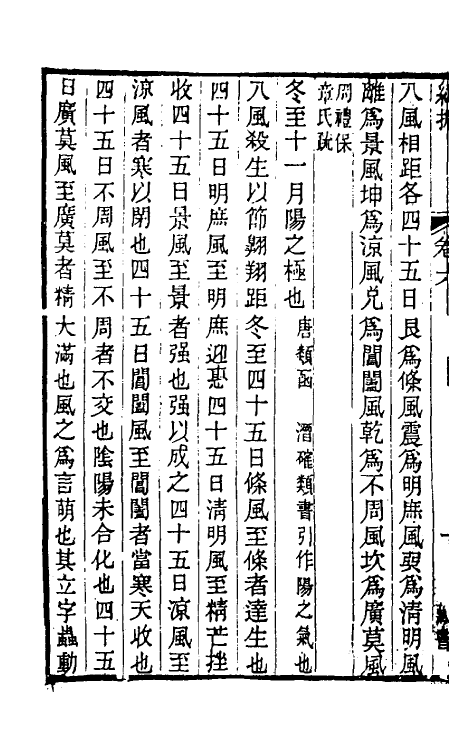 八風相距各四十五日艮爲條風震爲明庶風巽爲清明風
離爲景風坤爲涼風兌爲閶闔風乾爲不周風坎爲廣莫風
周禮保
章氏疏
冬至十一月陽之極也唐類函 潛確類書引作陽之氣也
八風殺生以節翱翔距冬至四十五日條風至條者達生也
四十五日明庶風至明庶迎惠四十五日清明風至精芒挫
收四十五日景風至景者强也强以成之四十五日涼風至
涼風者寒以閉也四十五日閶闔風至閶闔者當寒天收也
四十五日不周風至不周者不交也陰陽未合化也四十五
日廣莫風至廣莫者精大滿也風之爲言萌也其立字蟲動